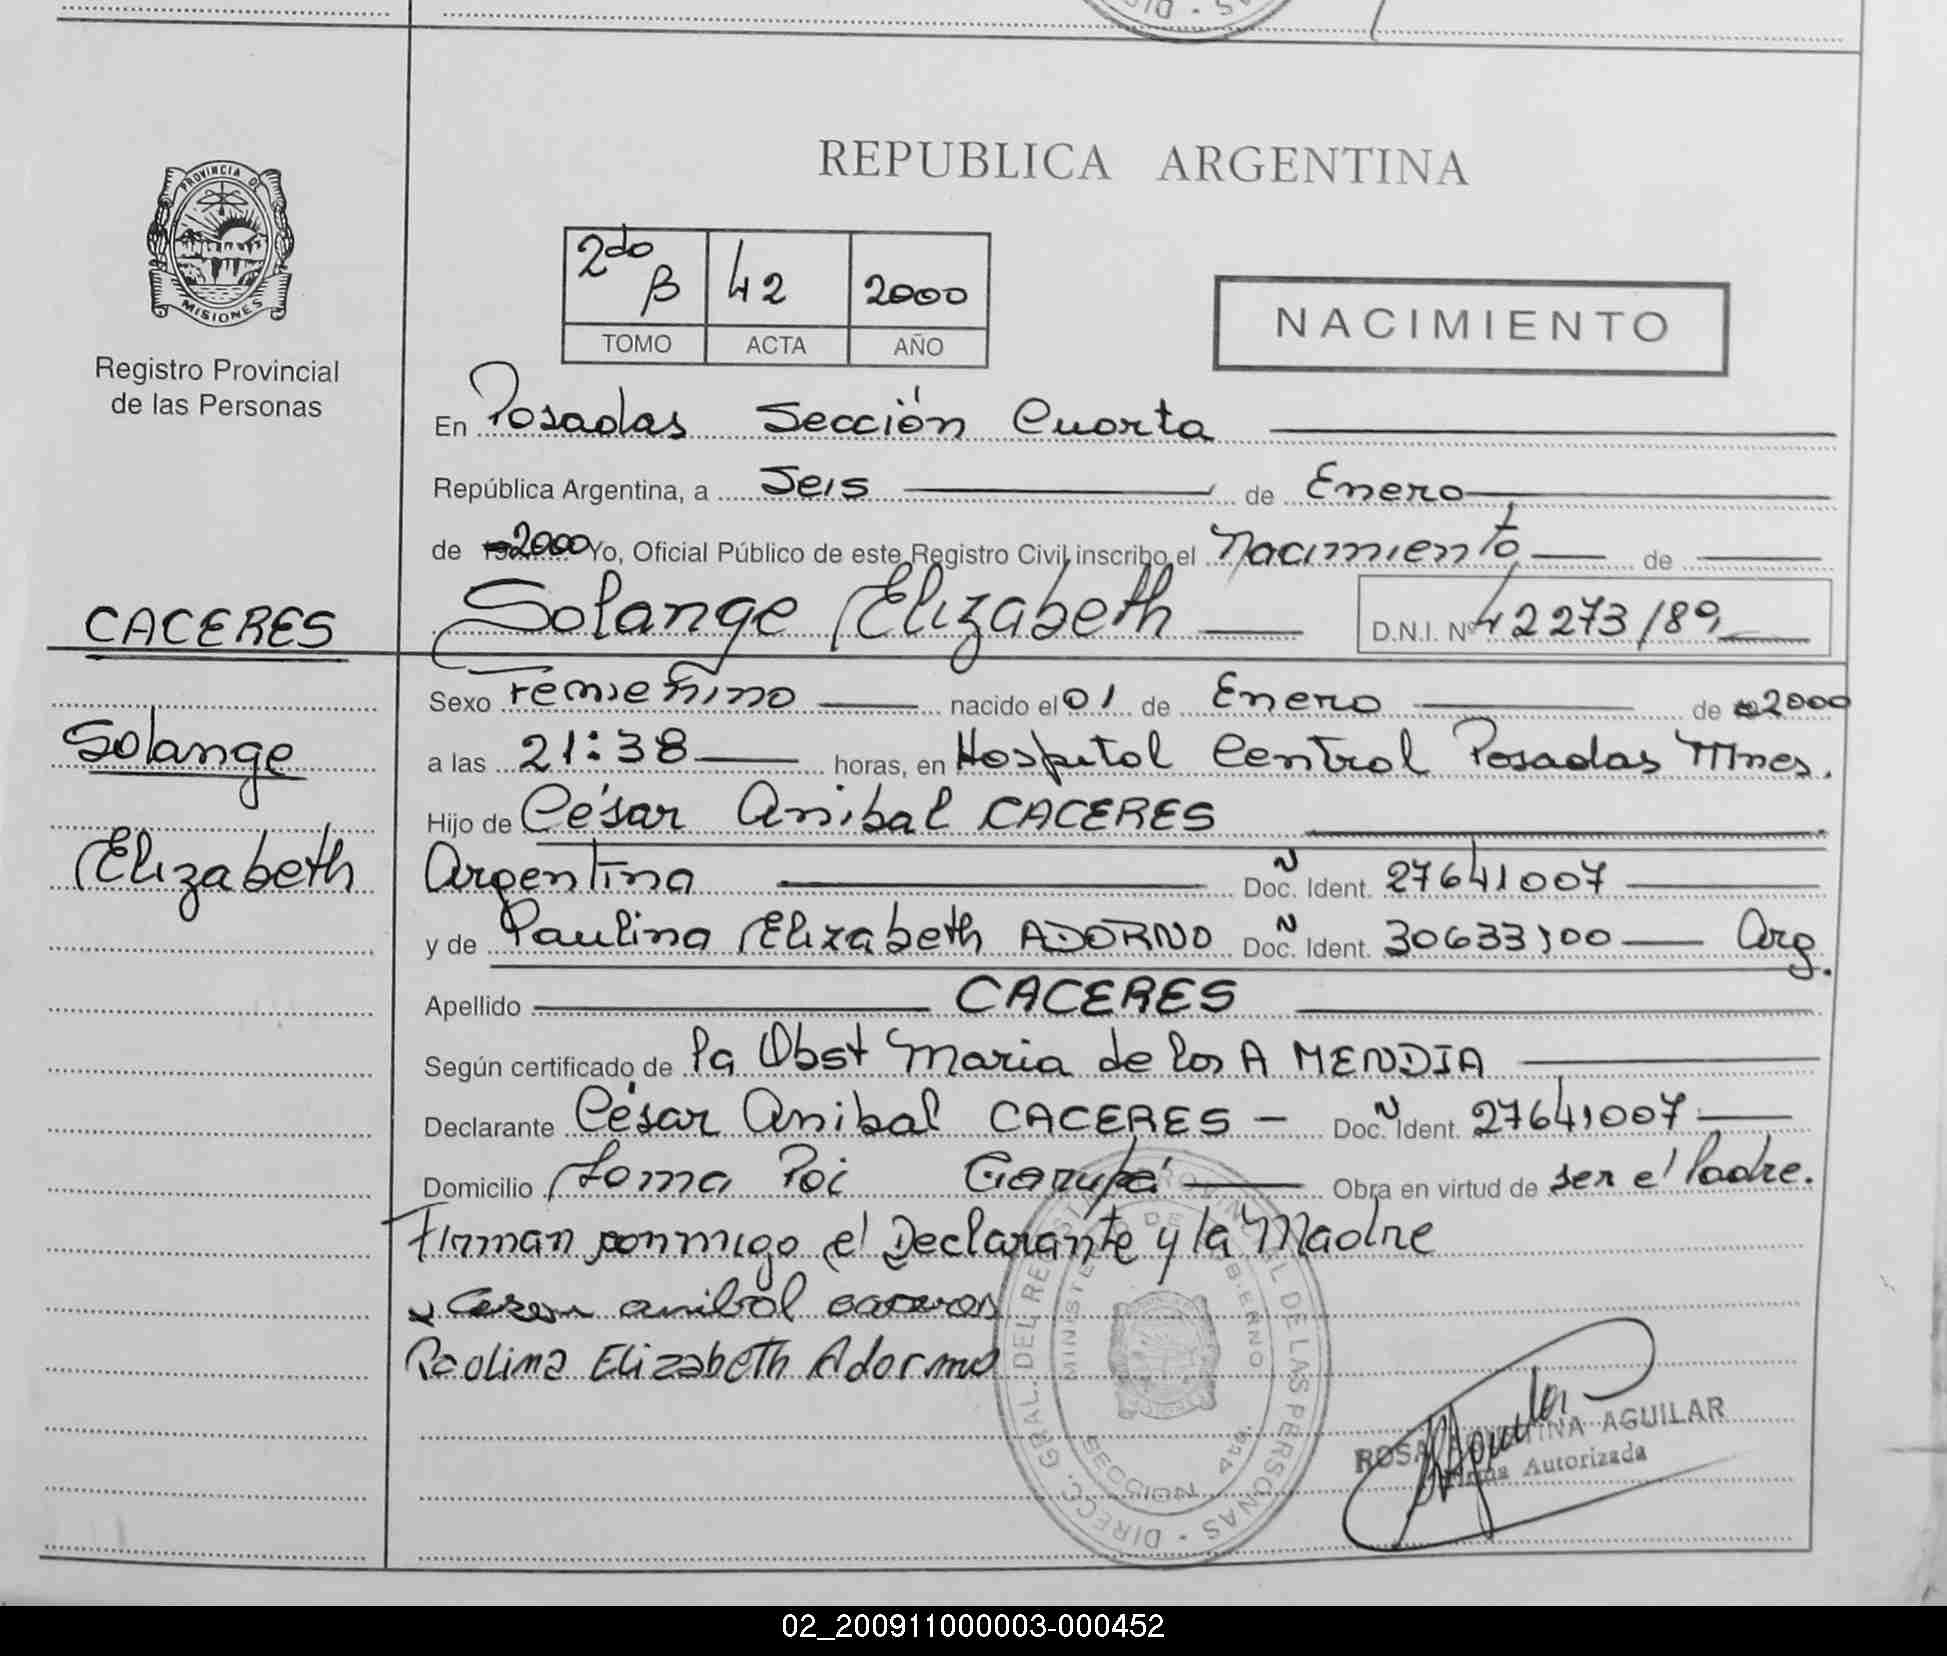 REPUBLICA ARGENTINA
PROVINCIA DE
MISIONES
Registro Provincial
de las Personas
2do B 42 2000
TOMO ACTA AÑO
NACIMIENTO
En Posadas Sección Cuarta
República Argentina, a Seis de Enero
de 2000 Yo, Oficial Público de este Registro Civil inscribo el Nacimiento de
Solange Elizabeth D.N.I. Nº 42273189
CACERES
Solange
Elizabeth
Sexo Femenino nacido el 01 de Enero de 2000
a las 21:38 horas, en Hospital Central Posadas Mnes.
Hijo de César Anibal CACERES
Argentina Doc. Ident. 27641007
y de Paulina Elizabeth ADORNO Doc. Ident. 30633100 Arg.
Apellido CACERES
Según certificado de la Obst Maria de los A MENDIA
Declarante César Anibal CACERES Doc. Ident. 27641007
Domicilio Loma Poi Garupá Obra en virtud de ser el Padre.
Firman conmigo el Declarante y la Madre
Cesar anibal caceres
Paolina Elizabeth Adorno
DIRECC. GRAL. DEL REGISTRO PROVINCIAL DE LAS PERSONAS
MINISTERIO DE GOBIERNO
SECCION 4ta.
ROSA AGUILAR
Firma Autorizada
02_200911000003-000452